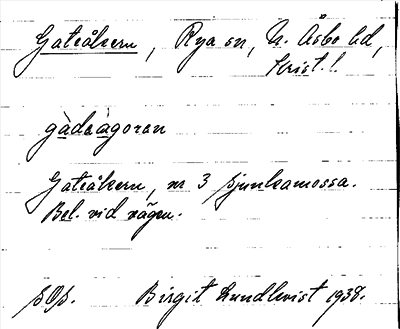 Gateåkern, Rya sn, N. Åsbo hd,
Krist. l.
gàdaàgoran
Gateåkern, nr 3 Sjunkamossa.
Bel. vid vägen.
Birgit Lundkvist 1938.